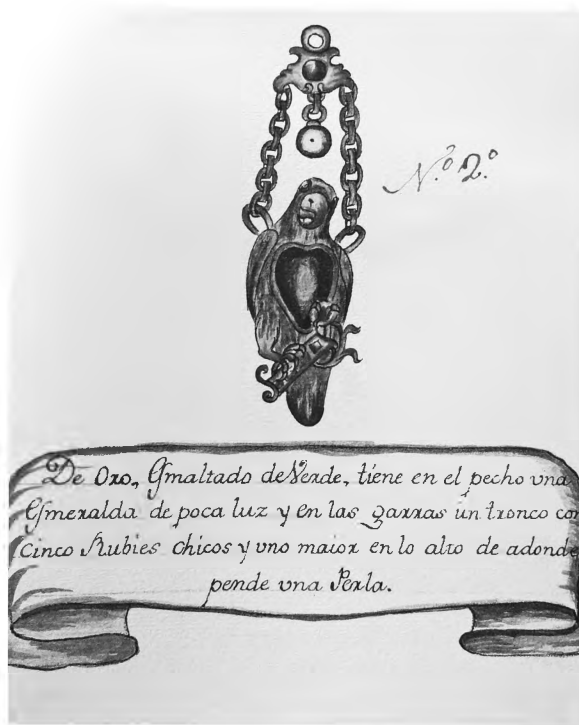 N.º 2.º
De Oro, Esmaltado de Verde, tiene en el pecho vna
Esmeralda de poca luz y en las garras un tronco con
Cinco Rubies chicos y vno maior en lo alto de adonde
pende vna Perla.